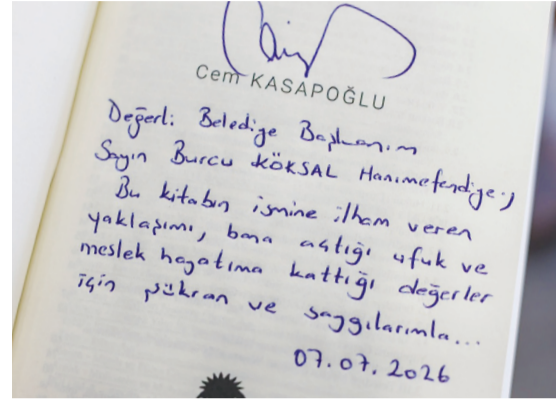 Cem KASAPOĞLU
Değerli Belediye Başkanım
Sayın Burcu KÖKSAL Hanımefendiye;
Bu kitabın ismine ilham veren
yaklaşımı, bana açtığı ufuk ve
meslek hayatıma kattığı değerler
için şükran ve saygılarımla...
07.07.2026